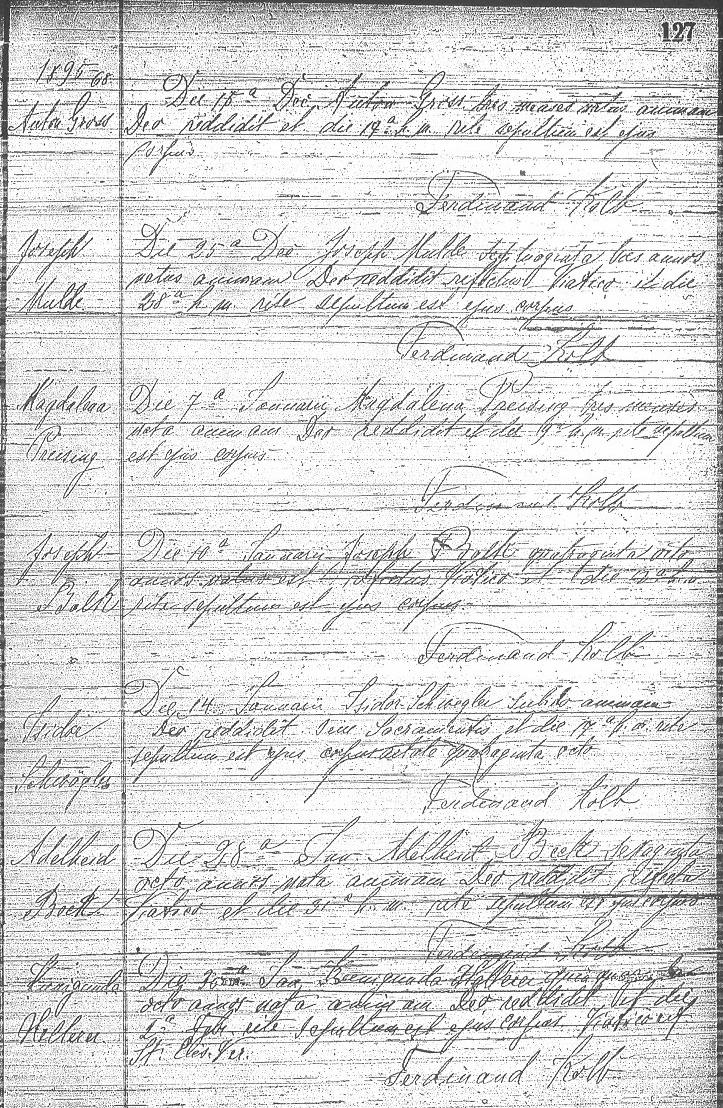 127
1895
Anton Gross
Die 15a Dec Anton Gross tres menses natus animam
Deo reddidit et die 17a h. m. rite sepultum est ejus
corpus
Ferdinand Kolb
Joseph
Mulde
Die 25a Dec Joseph Mulde septuaginta tres annos
natus animam Deo reddidit refectus Viatico et die
28a h. m. rite sepultum est ejus corpus
Ferdinand Kolb
Magdalena
Preising
Die 7a Januarii Magdalena Preising tres menses
nata animam Deo reddidit et die 9a h. m. rite sepultum
est ejus corpus
Ferdinand Kolb
Joseph
Balk
Die 10a Januarii Joseph octo
annos natus est refectus Viatico et die 12a h. m.
rite sepultum est ejus corpus
Ferdinand Kolb
Isidor
Schwögler
Die 14 Januarii Isidor Schwegler subito animam
Deo reddidit sine Sacramentis et die 17a h. m. rite
sepultum est ejus corpus aetate octo
Ferdinand Kolb
Adelheid
Beck
Die 28a Jan Adelheid Beck
octo annos nata animam Deo reddidit refecta
Viatico et die 31a h. m. rite sepultum est ejus corpus
Ferdinand Kolb
Kunigunda
Die Jan Kunigunda
octo annos nata animam Deo reddidit et die
1a Feb. rite sepultum est ejus corpus Viatico
Ferdinand Kolb